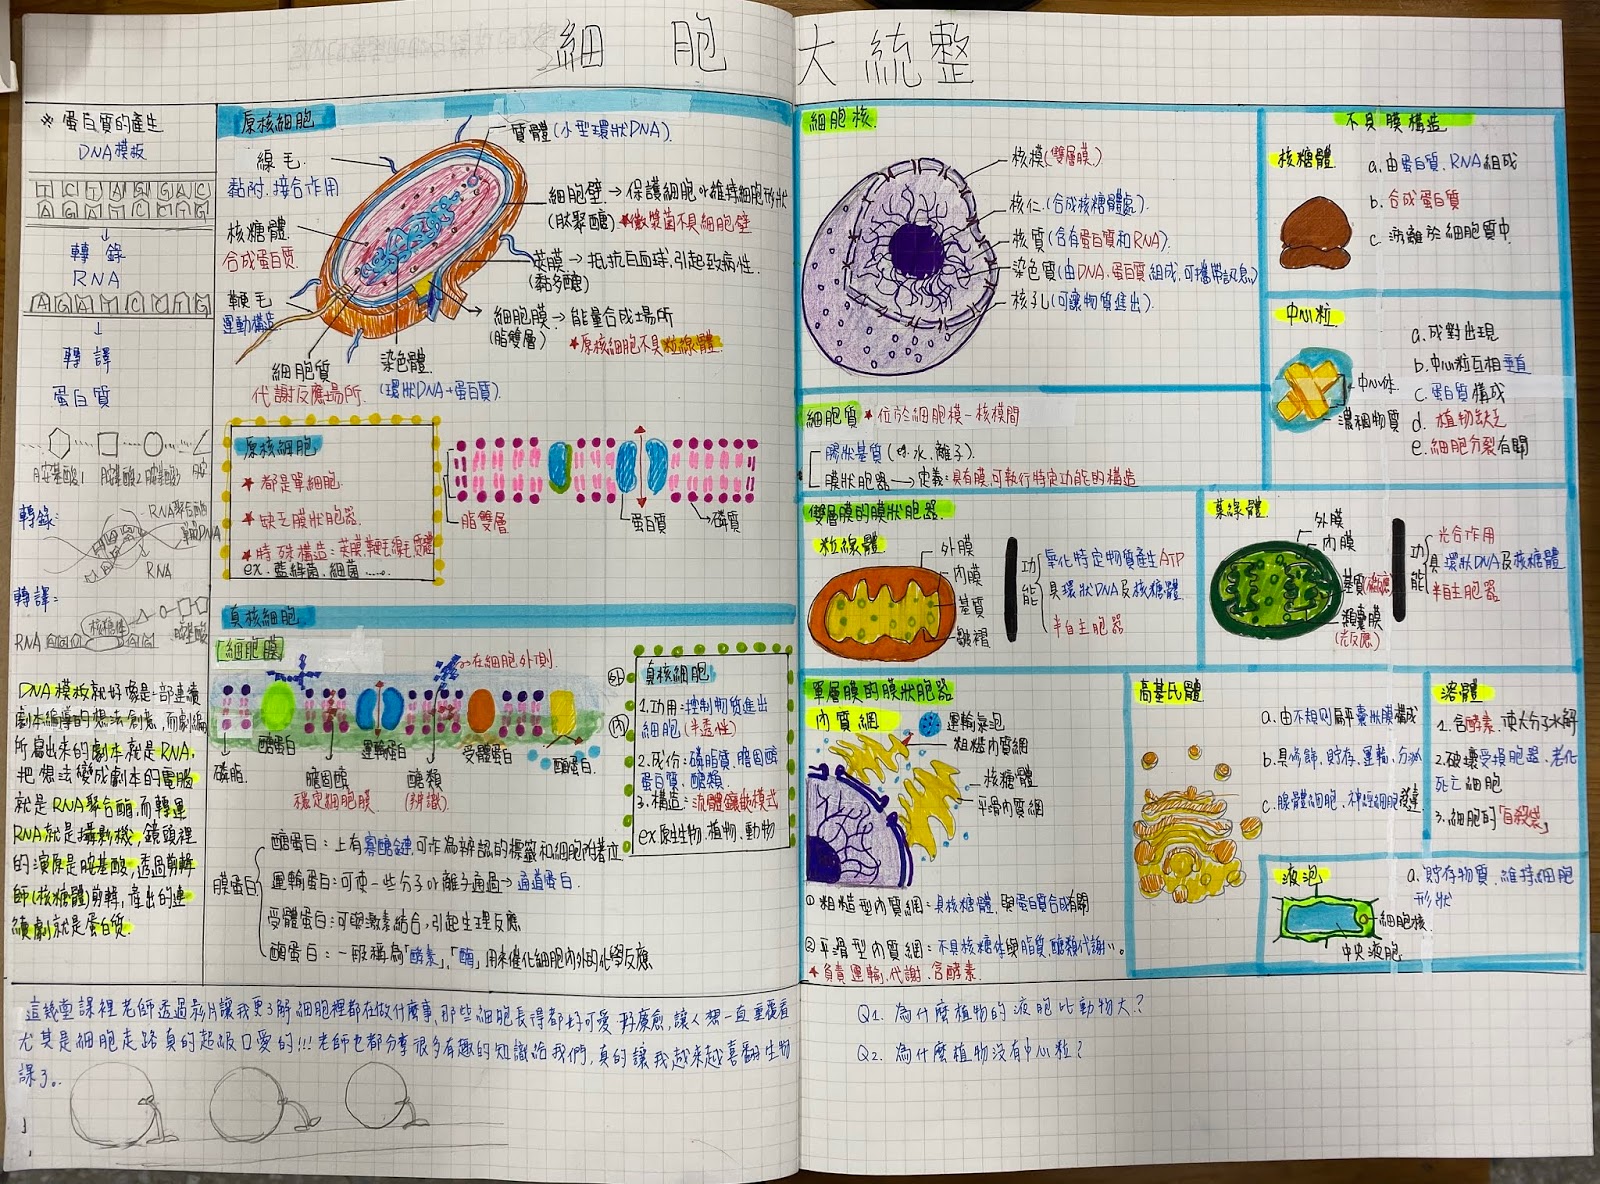 細胞大統整
※ 蛋白質的產生
DNA模板
T C T A G G A C
A G A T C C T G
↓
轉錄
RNA
↓
轉譯
蛋白質
胺基酸1 胺基酸2 胺基酸3
轉錄：
RNA聚合酶
單股DNA
RNA
轉譯：
核糖體
RNA
胺基酸
DNA模板就好像是一部連續
劇本編導的想法創意，而劇編
所寫出來的劇本就是RNA，
把想法變成劇本的電腦
就是RNA聚合酶，而轉運
RNA就是攝影機，鏡頭裡
的演原是胺基酸，透過剪輯
師(核糖體)剪輯，產出的連
續劇就是蛋白質.
原核細胞
質體(小型環狀DNA)
線毛.
黏附.接合作用
細胞壁 → 保護細胞、維持細胞形狀
(肽聚醣) ★黴漿菌不具細胞壁
核糖體
合成蛋白質.
莢膜 → 抵抗白血球,引起致病性.
(黏多醣)
鞭毛
運動構造
細胞膜 → 能量合成場所
(脂雙層) ★原核細胞不具粒線體.
細胞質
代謝反應場所.
染色體
(環狀DNA+蛋白質).
原核細胞
★ 都是單細胞.
★ 缺乏膜狀胞器.
★ 特殊構造：莢膜.鞭毛.線毛.質體
ex. 藍綠菌、細菌......
脂雙層
蛋白質
磷質
真核細胞
細胞膜
在細胞外側.
外
內
磷脂.
醣蛋白
膽固醇
穩定細胞膜.
運輸蛋白
醣類
(辨識)
受體蛋白
酶蛋白.
真核細胞
1.功用：控制物質進出
細胞(半透性)
2.成份：磷脂質,膽固醇
蛋白質、醣類.
3.構造：流體鑲嵌模式
ex原生生物.植物.動物
膜蛋白
醣蛋白：上有寡醣鏈,可作為辨認的標籤和細胞附著位
運輸蛋白：可使一些分子or離子通過→通道蛋白.
受體蛋白：可與激素結合,引起生理反應
酶蛋白：一般稱為「酵素」、「酶」,用來催化細胞內外的化學反應
這幾堂課裡老師透過影片讓我更了解細胞裡都在做什麼事、那些細胞長得都好可愛.好療癒,讓人想一直重覆看
尤其是細胞走路真的超級口愛的!!!老師也都分享很多有趣的知識給我們,真的讓我越來越喜翻生物
課了。
細胞核.
核膜(雙層膜.)
核仁.(合成核糖體處).
核質(含有蛋白質和RNA).
染色質(由DNA.蛋白質組成,可攜帶訊息)
核孔(可讓物質進出).
細胞質 ★位於細胞膜－核膜間
膠狀基質(ex.水.離子).
膜狀胞器 → 定義：具有膜,可執行特定功能的構造
雙層膜的膜狀胞器.
粒線體
外膜
內膜
基質
皺褶
功能
氧化特定物質產生ATP
具環狀DNA及核糖體.
半自主胞器
葉綠體.
外膜
內膜
類囊膜
(光反應)
功能
光合作用
具環狀DNA及核糖體
半自主胞器
單層膜的膜狀胞器
內質網
運輸氣泡
粗糙內質網
核糖體
平滑內質網
① 粗糙型內質網：具核糖體,與蛋白質合成有關
② 平滑型內質網：不具核糖体與脂質,醣類代謝
★負責運輸.代謝.含酵素.
高基氏體
a.由不規則扁平囊狀膜構成
b.具修飾、貯存、運輸、分泌
c.腺體細胞、神經細胞發達
溶體
1.含酵素.使大分子水解
2.破壞受損胞器、老化
死亡細胞
3.細胞的「自殺袋」
液泡
a.貯存物質.維持細胞
形狀
細胞核.
中央液胞
不具膜構造
核糖體
a.由蛋白質、RNA組成
b.合成蛋白質
c.游離於細胞質中.
中心粒
中心体
濃稠物質
a.成對出現
b.中心粒互相垂直
c.蛋白質構成
d.植物缺乏
e.細胞分裂有關
Q1. 為什麼植物的液胞比動物大?
Q2. 為什麼植物沒有中心粒?